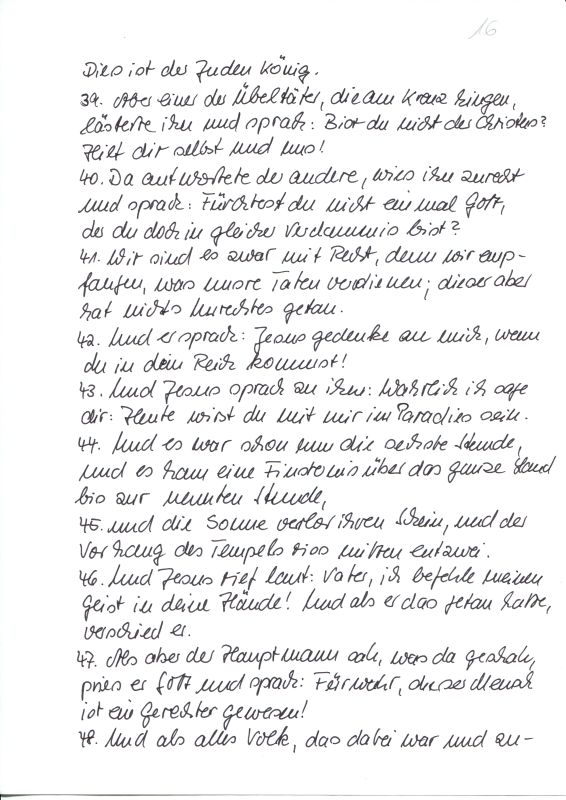 16
Dies ist der Juden König.
39. Aber einer der Übeltäter, die am Kreuz hingen,
lästerte ihn und sprach: Bist du nicht der Christus?
Hilf dir selbst und uns!
40. Da antwortete der andere, wies ihn zurecht
und sprach: Fürchtest du nicht einmal Gott,
der du doch in gleicher Verdammnis bist?
41. Wir sind es zwar mit Recht, denn wir emp-
fangen, was unsre Taten verdienen; dieser aber
hat nichts Unrechtes getan.
42. Und er sprach: Jesus gedenke an mich, wenn
du in dein Reich kommst!
43. Und Jesus sprach zu ihm: Wahrlich ich sage
dir: Heute wirst du mit mir im Paradies sein.
44. Und es war schon um die sechste Stunde,
und es kam eine Finsternis über das ganze Land
bis zur neunten Stunde,
45. und die Sonne verlor ihren Schein, und der
Vorhang des Tempels riss mitten entzwei.
46. Und Jesus rief laut: Vater, ich befehle meinen
Geist in deine Hände! Und als er das getan hatte,
verschied er.
47. Als aber der Hauptmann sah, was da geschah,
pries er Gott und sprach: Fürwahr, dieser Mensch
ist ein Gerechter gewesen!
48. Und als alles Volk, das dabei war und zu-